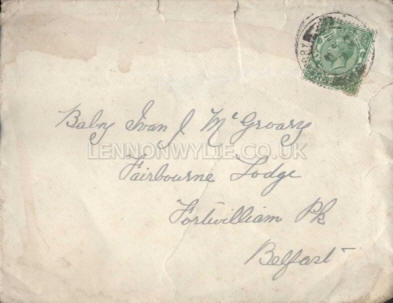 Baby Ivan J McGroary
LENNONWYLIE.CO.UK
Fairbourne Lodge
Fortwilliam Pk
Belfast